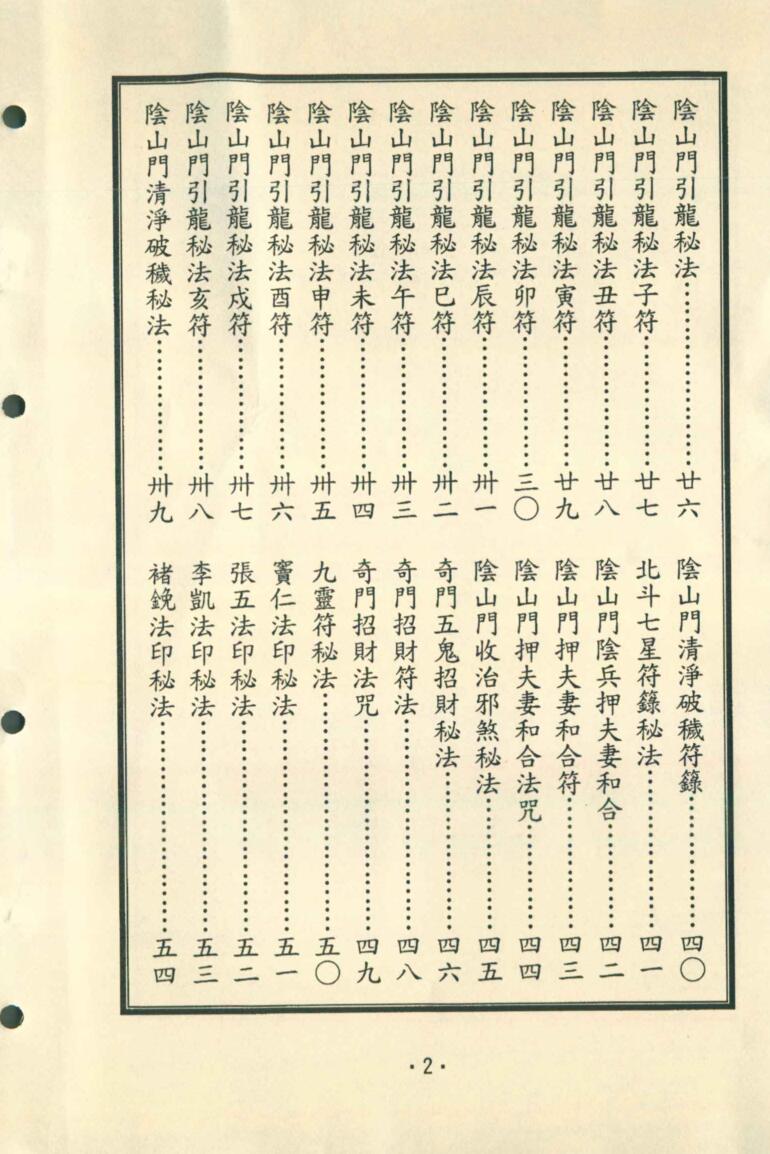 陰山門引龍秘法……………………廿六
陰山門引龍秘法子符………………廿七
陰山門引龍秘法丑符………………廿八
陰山門引龍秘法寅符………………廿九
陰山門引龍秘法卯符………………三〇
陰山門引龍秘法辰符………………卅一
陰山門引龍秘法巳符………………卅二
陰山門引龍秘法午符………………卅三
陰山門引龍秘法未符………………卅四
陰山門引龍秘法申符………………卅五
陰山門引龍秘法酉符………………卅六
陰山門引龍秘法戌符………………卅七
陰山門引龍秘法亥符………………卅八
陰山門清淨破穢秘法………………卅九
陰山門清淨破穢符籙………………四〇
北斗七星符籙秘法…………………四一
陰山門陰兵押夫妻和合……………四二
陰山門押夫妻和合符………………四三
陰山門押夫妻和合法咒……………四四
陰山門收治邪煞秘法………………四五
奇門五鬼招財秘法…………………四六
奇門招財符法………………………四八
奇門招財法咒………………………四九
九靈符秘法…………………………五〇
竇仁法印秘法………………………五一
張五法印秘法………………………五二
李凱法印秘法………………………五三
褚鋔法印秘法………………………五四
·2·